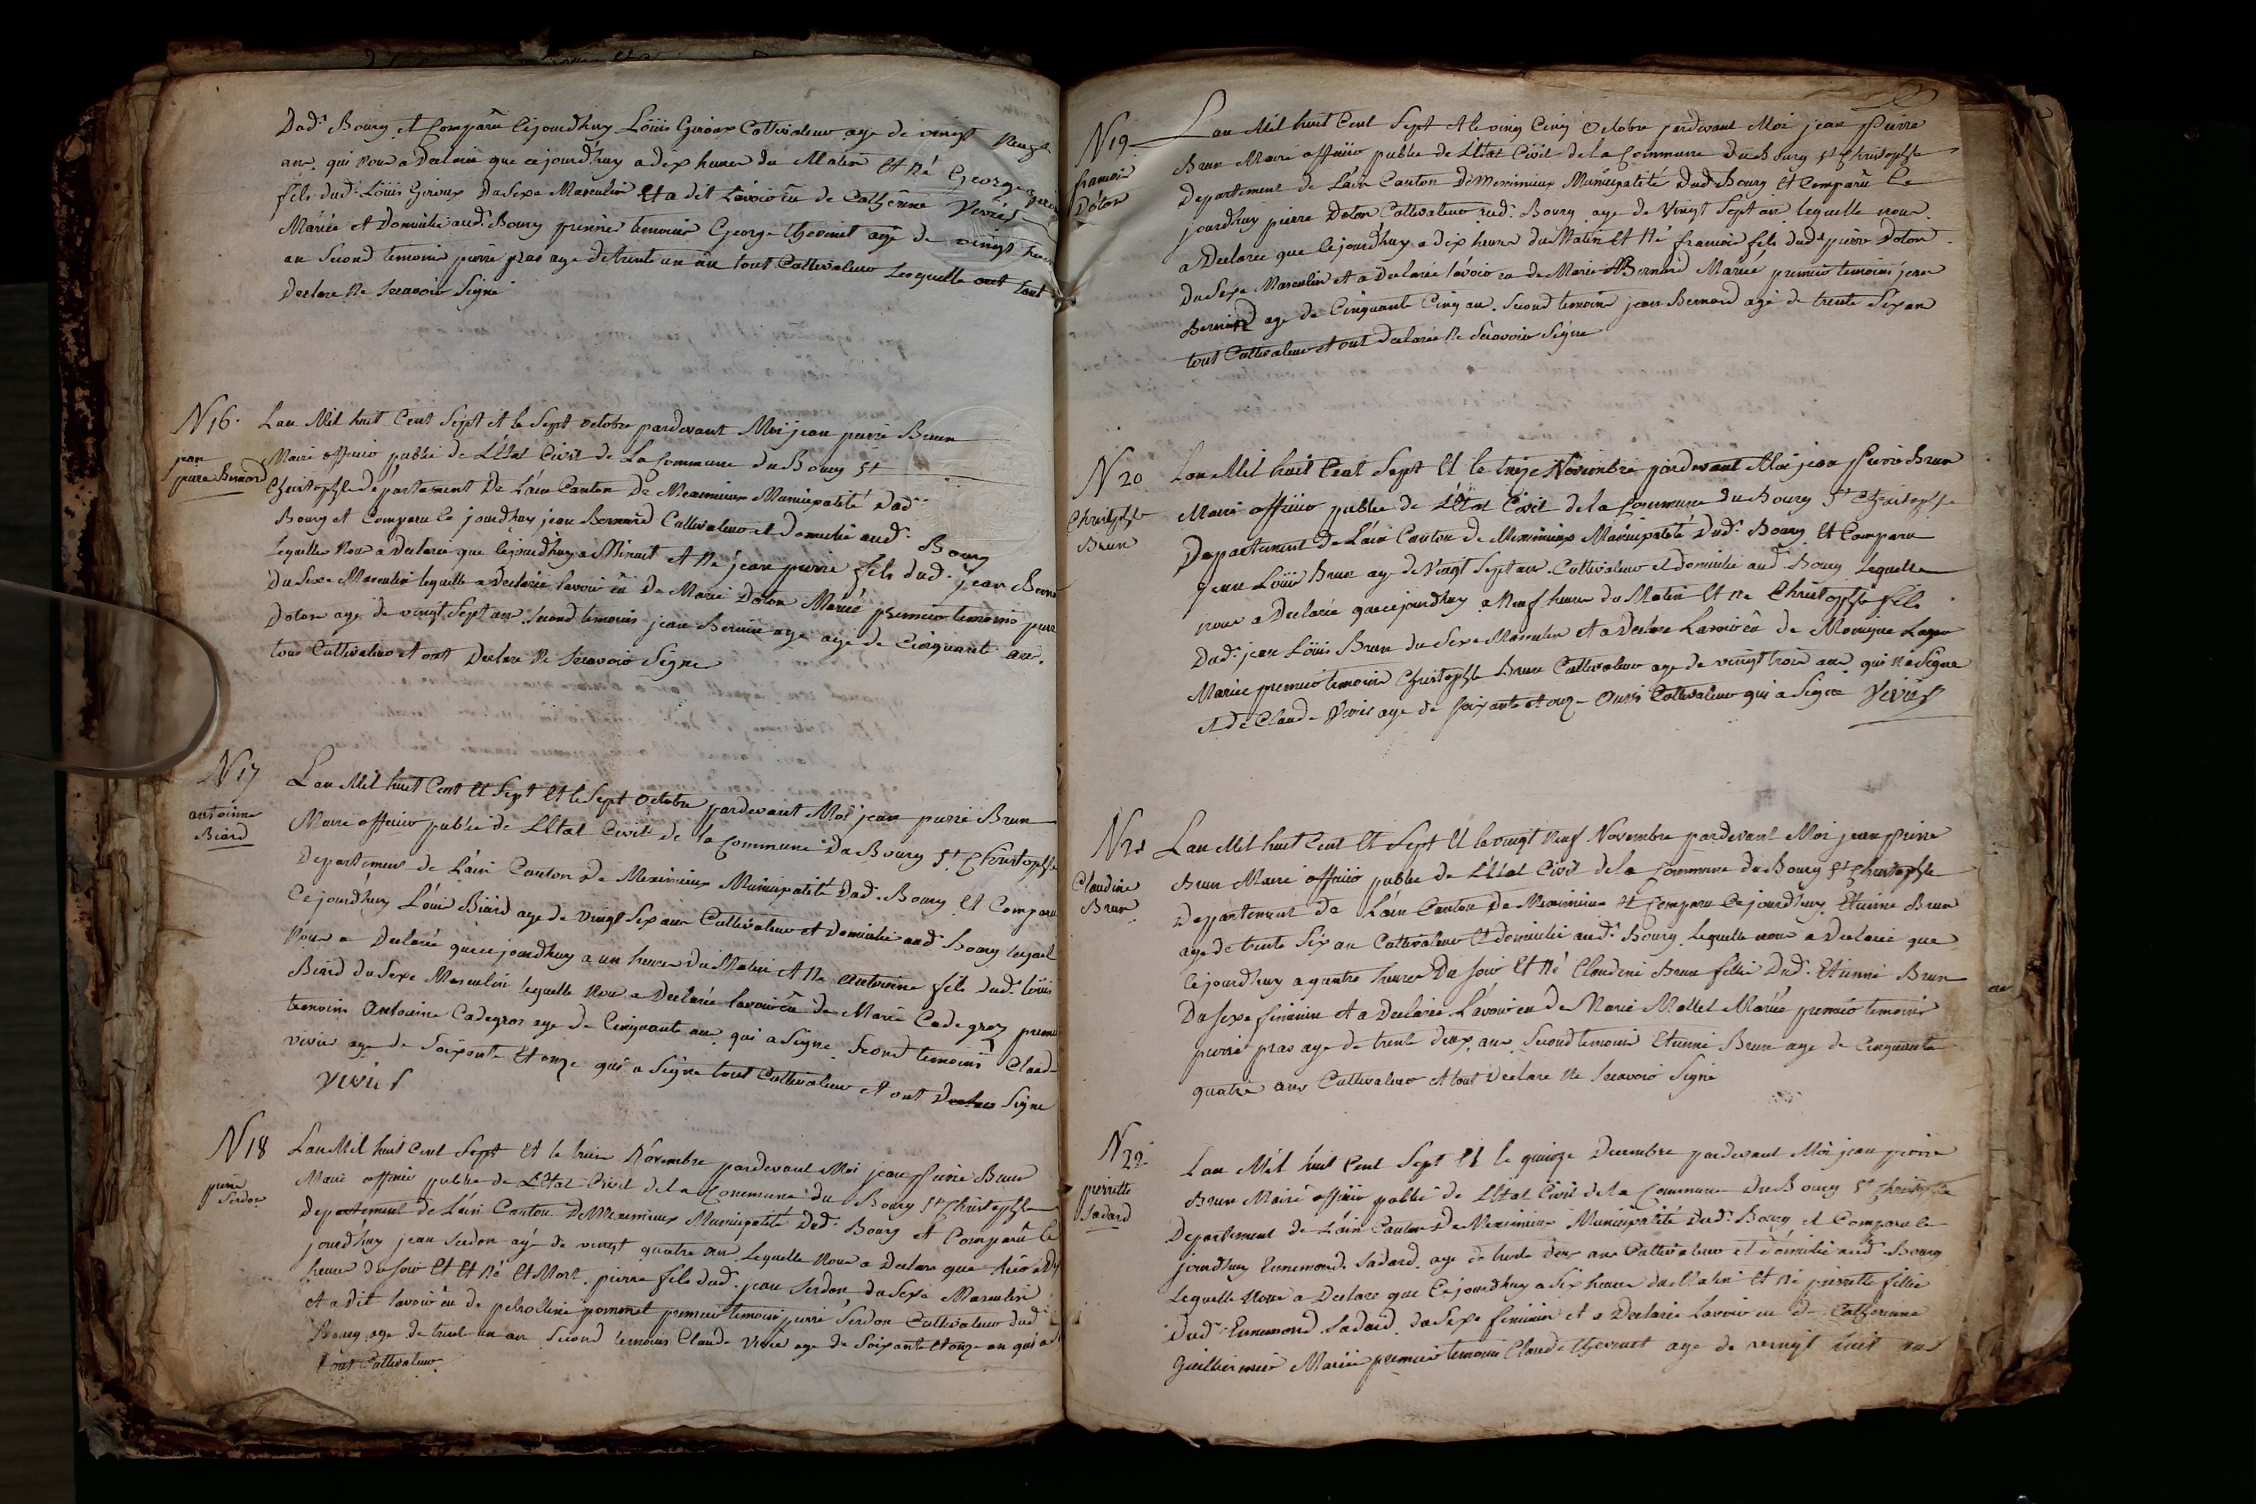 Dud. Bourg et Comparü Cejourdhuy Loüis Giroux Cottivateur age de vingt neuf
ans qui nous a Declarée que cejourdhuy a dix heures du Matin Et né George
fils dud. Loüis Giroux Du Sexe Masculin Et a dit Lavoir eü de Catherine Vivies
Mariée et Domicilié aud. Bourg premier temoins George thevenet agé de vingt
an Second temoins pierre pras age de trente un an tout Cultivateur Lesquelle ont tout
Declare Ne Scavoir Signé
N 16. Lan Mil huit Cent Sept et le Sept octobre pardevant Moi jean pierre Brun
jean pierre Bernard
Maire officier public de L'état Civil de La Commune du Bourg St
Christophle departement De L'ain Canton De Meximieux Municipalité Dud.
Bourg et Comparu Ce jourdhuy jean Bernard Cultivateur et Domicilié aud. Bourg
Lequelle Nous a Declarée que Cejourdhuy a Minuit et Né jean pierre fils dud. jean
Du Sexe Masculin lequelle a Declarée lavoir eü De Marie Doton Mariée premier temoins pierre
Doton age de vingt Sept ans Second temoins jean Bernard age age de Cinquante ans.
tous Cultivateur et ont Declare Ne Scavoir Signe
N 17 Lan Mil huit Cent Et Sept Et le Sept Octobre pardevant Moi jean pierre Brun
antoinne
Biard
Maire officier public de L'Etat Civil de la Commune Du Bourg St. Christophle
Departement de L'ain Canton De Meximieux Municipalité Dud. Bourg Et Comparu
Cejourdhuy Loüis Biard age de Vingt Six ans Cultivateur et Domicilié aud. Bourg lequel
Nous a Declarée que cejourdhuy a un heures Du Matin Et Né Antoinne fils dud. loüis
Biard du Sexe Masculin lequelle Nous a Declarée lavoir eü de Marie Cadegroz premier
temoins Antoinne Cadegros age de Cinquante ans qui a Signe Second temoins Claude
vivies age de Soixante Et onze qui a Signe tout Cultivateur et ont Declare Signe
Vivies
N 18 Lan Mil huit Cent Sept et le Novembre pardevant Moi jean pierre Brun
pierre
Serdon
Maire officier public de L'Etat Civil de la Commune du Bourg St Christophle
departement de L'ain Canton De Meximieux Municipalité Dud. Bourg et Comparü Ce
jourdhuy jean Serdon agé de vingt quatre ans Lequelle Nous a Declare que
heures du Soir Et Et Né Et Mort. pierre fils dud. jean Serdon du Sexe Masculin
et a dit lavoir eu de pommet premier temoins pierre Serdon Cultivateur dud
Bourg age de trente un an Second temoins Claude Vivie age de Soixante et onze an qui a
tout Cultivateur
N 19 Lan Mil huit Cent Sept et le ving Cinq Octobre pardevant Moi jean pierre
francois
Doton
Brun Maire officier public de L'Etat Civil de la Commune Du Bourg St. Christophle
Departement de L'ain Canton De Meximieux Municipalité Dud. Bourg Et Comparü Ce
jourdhuy pierre Doton Cultivateur aud. Bourg age de Vingt Sept ans lequelle nous
a Declaree que Cejourdhuy a dix heures du Matin Et Né francois fils dud. pierre Doton
Du Sexe Masculin et a Declarée lavoir eu de Marie Bernard Mariée premier temoins jean
Bernard age de Cinquante Cinq ans Second temoins jean Bernard agé de trente Six an
tout Cultivateur et ont Declarée Ne Scavoir Signe
N 20 Lan Mil huit Cent Sept Et le treize Novembre pardevant Moi jean Pierre Brun
Christophle
Brun
Maire officier public de L'Etat Civil de la Commune du Bourg St Christophle
Departement de L'ain Canton de Meximieux Municipalité Dud. Bourg Et Comparu
jean Loüis Brun age de Vingt Sept ans Cultivateur et domicilié aud. Bourg Lequelle
nous a Declarée que cejourdhuy a Neuf heures du Matin Et né Christophle fils
Dud. jean Loüis Brun du Sexe Masculin et a Declare Lavoir eü de Monique
Mariée premier temoins Christophle Brun Cultivateur age de vingt trois ans qui na Signe
et de Claude Vivies age de Soixante et onze aussi Cultivateur qui a Signé Vivies
N 21 Lan Mil huit Cent Et Sept Et le vingt Neuf Novembre pardevant Moi jean pierre
Claudine
Brun
Brun Maire officier public de L'Etat Civil de la Commune du Bourg St Christophle
Departement de L'ain Canton De Meximieux Et Comparu Cejourdhuy Etienne Brun
age de trente Six an Cultivateur Et domicilié aud. Bourg. Lequelle nous a Declaree que
Cejourdhuy a quatre heures Du Soir Et Né Claudine Brun fille Dud. Etienne Brun
Du Sexe feminin et a Declarée Lavoir eu de Marie Mollet Mariée premier temoins
pierre pras age de trente deux ans Second temoins Etienne Brun age de Cinquante
quatre ans Cultivateur et tout Declare Ne Scavoir Signé
N 22. Lan Mil huit Cent Sept Et le quinze Decembre pardevant Moi jean pierre
pierrette
Sadard
Brun Maire officier public de L'Etat Civil de la Commune Du Bourg St Christophle
Departement de L'ain Canton De Meximieux Municipalité Dud. Bourg et Comparu Ce
jourdhuy Ennemond Sadard age de trente deux ans Cultivateur et domicilié aud. Bourg
Lequelle Nous a Declare que Cejourdhuy a Six heures du Matin Et né pierrette fille
Dud. Ennemond Sadard du Sexe feminin et a Declarée Lavoir eu de Catherinne
Guillermier Mariée premier temoins Claude thevenet age de vingt huit ans